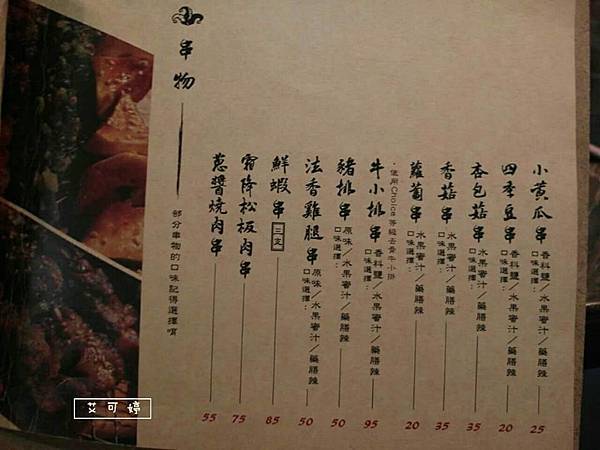 串物
部分串物的口味記得選擇唷
小黃瓜串 口味選擇：香料鹽／水果蜜汁／藥膳辣 25
四季豆串 口味選擇：香料鹽／水果蜜汁／藥膳辣 20
杏包菇串 口味選擇：水果蜜汁／藥膳辣 35
香菇串 口味選擇：水果蜜汁／藥膳辣 35
蘿蔔串 口味選擇：水果蜜汁／藥膳辣 20
牛小排串 口味選擇：香料鹽／水果蜜汁／藥膳辣 95
・使用Choice等級去骨牛小排
豬排串 口味選擇：原味／水果蜜汁／藥膳辣 50
法香雞腿串 口味選擇：原味／水果蜜汁／藥膳辣 50
鮮蝦串 三支 85
霜降松板肉串 75
蔥醬燒肉串 55
艾可婷